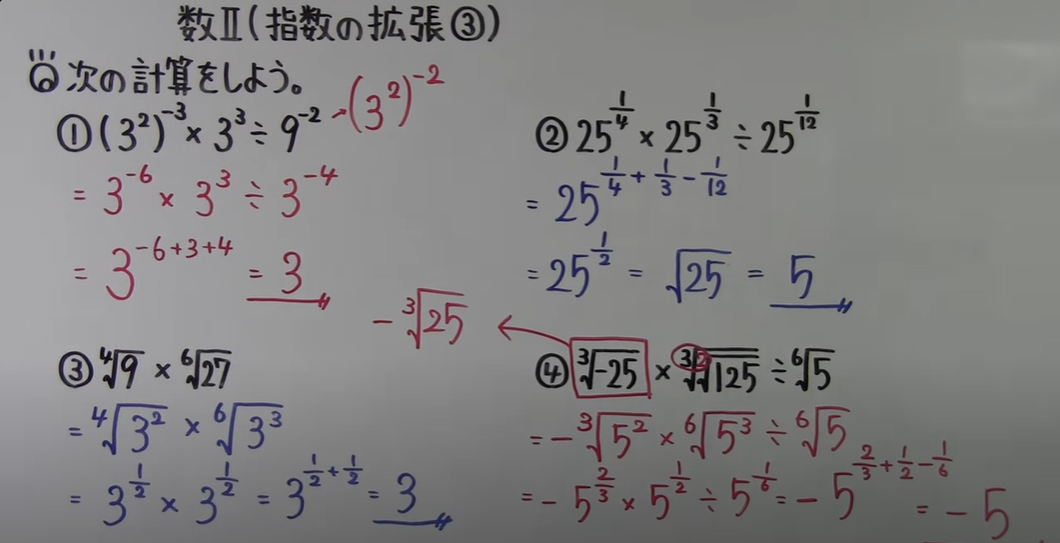 数Ⅱ(指数の拡張③)
次の計算をしよう。
①(3²)⁻³ × 3³ ÷ 9⁻² → (3²)⁻²
= 3⁻⁶ × 3³ ÷ 3⁻⁴
= 3^(-6+3+4) = 3
②25^(1/4) × 25^(1/3) ÷ 25^(1/12)
= 25^(1/4 + 1/3 - 1/12)
= 25^(1/2) = √25 = 5
③ ⁴√9 × ⁶√27
= ⁴√3² × ⁶√3³
= 3^(1/2) × 3^(1/2) = 3^(1/2 + 1/2) = 3
- ³√25 ←
④ ³√-25 × ³√²√125 ÷ ⁶√5
= - ³√5² × ⁶√5³ ÷ ⁶√5
= - 5^(2/3) × 5^(1/2) ÷ 5^(1/6) = - 5^(2/3 + 1/2 - 1/6) = - 5